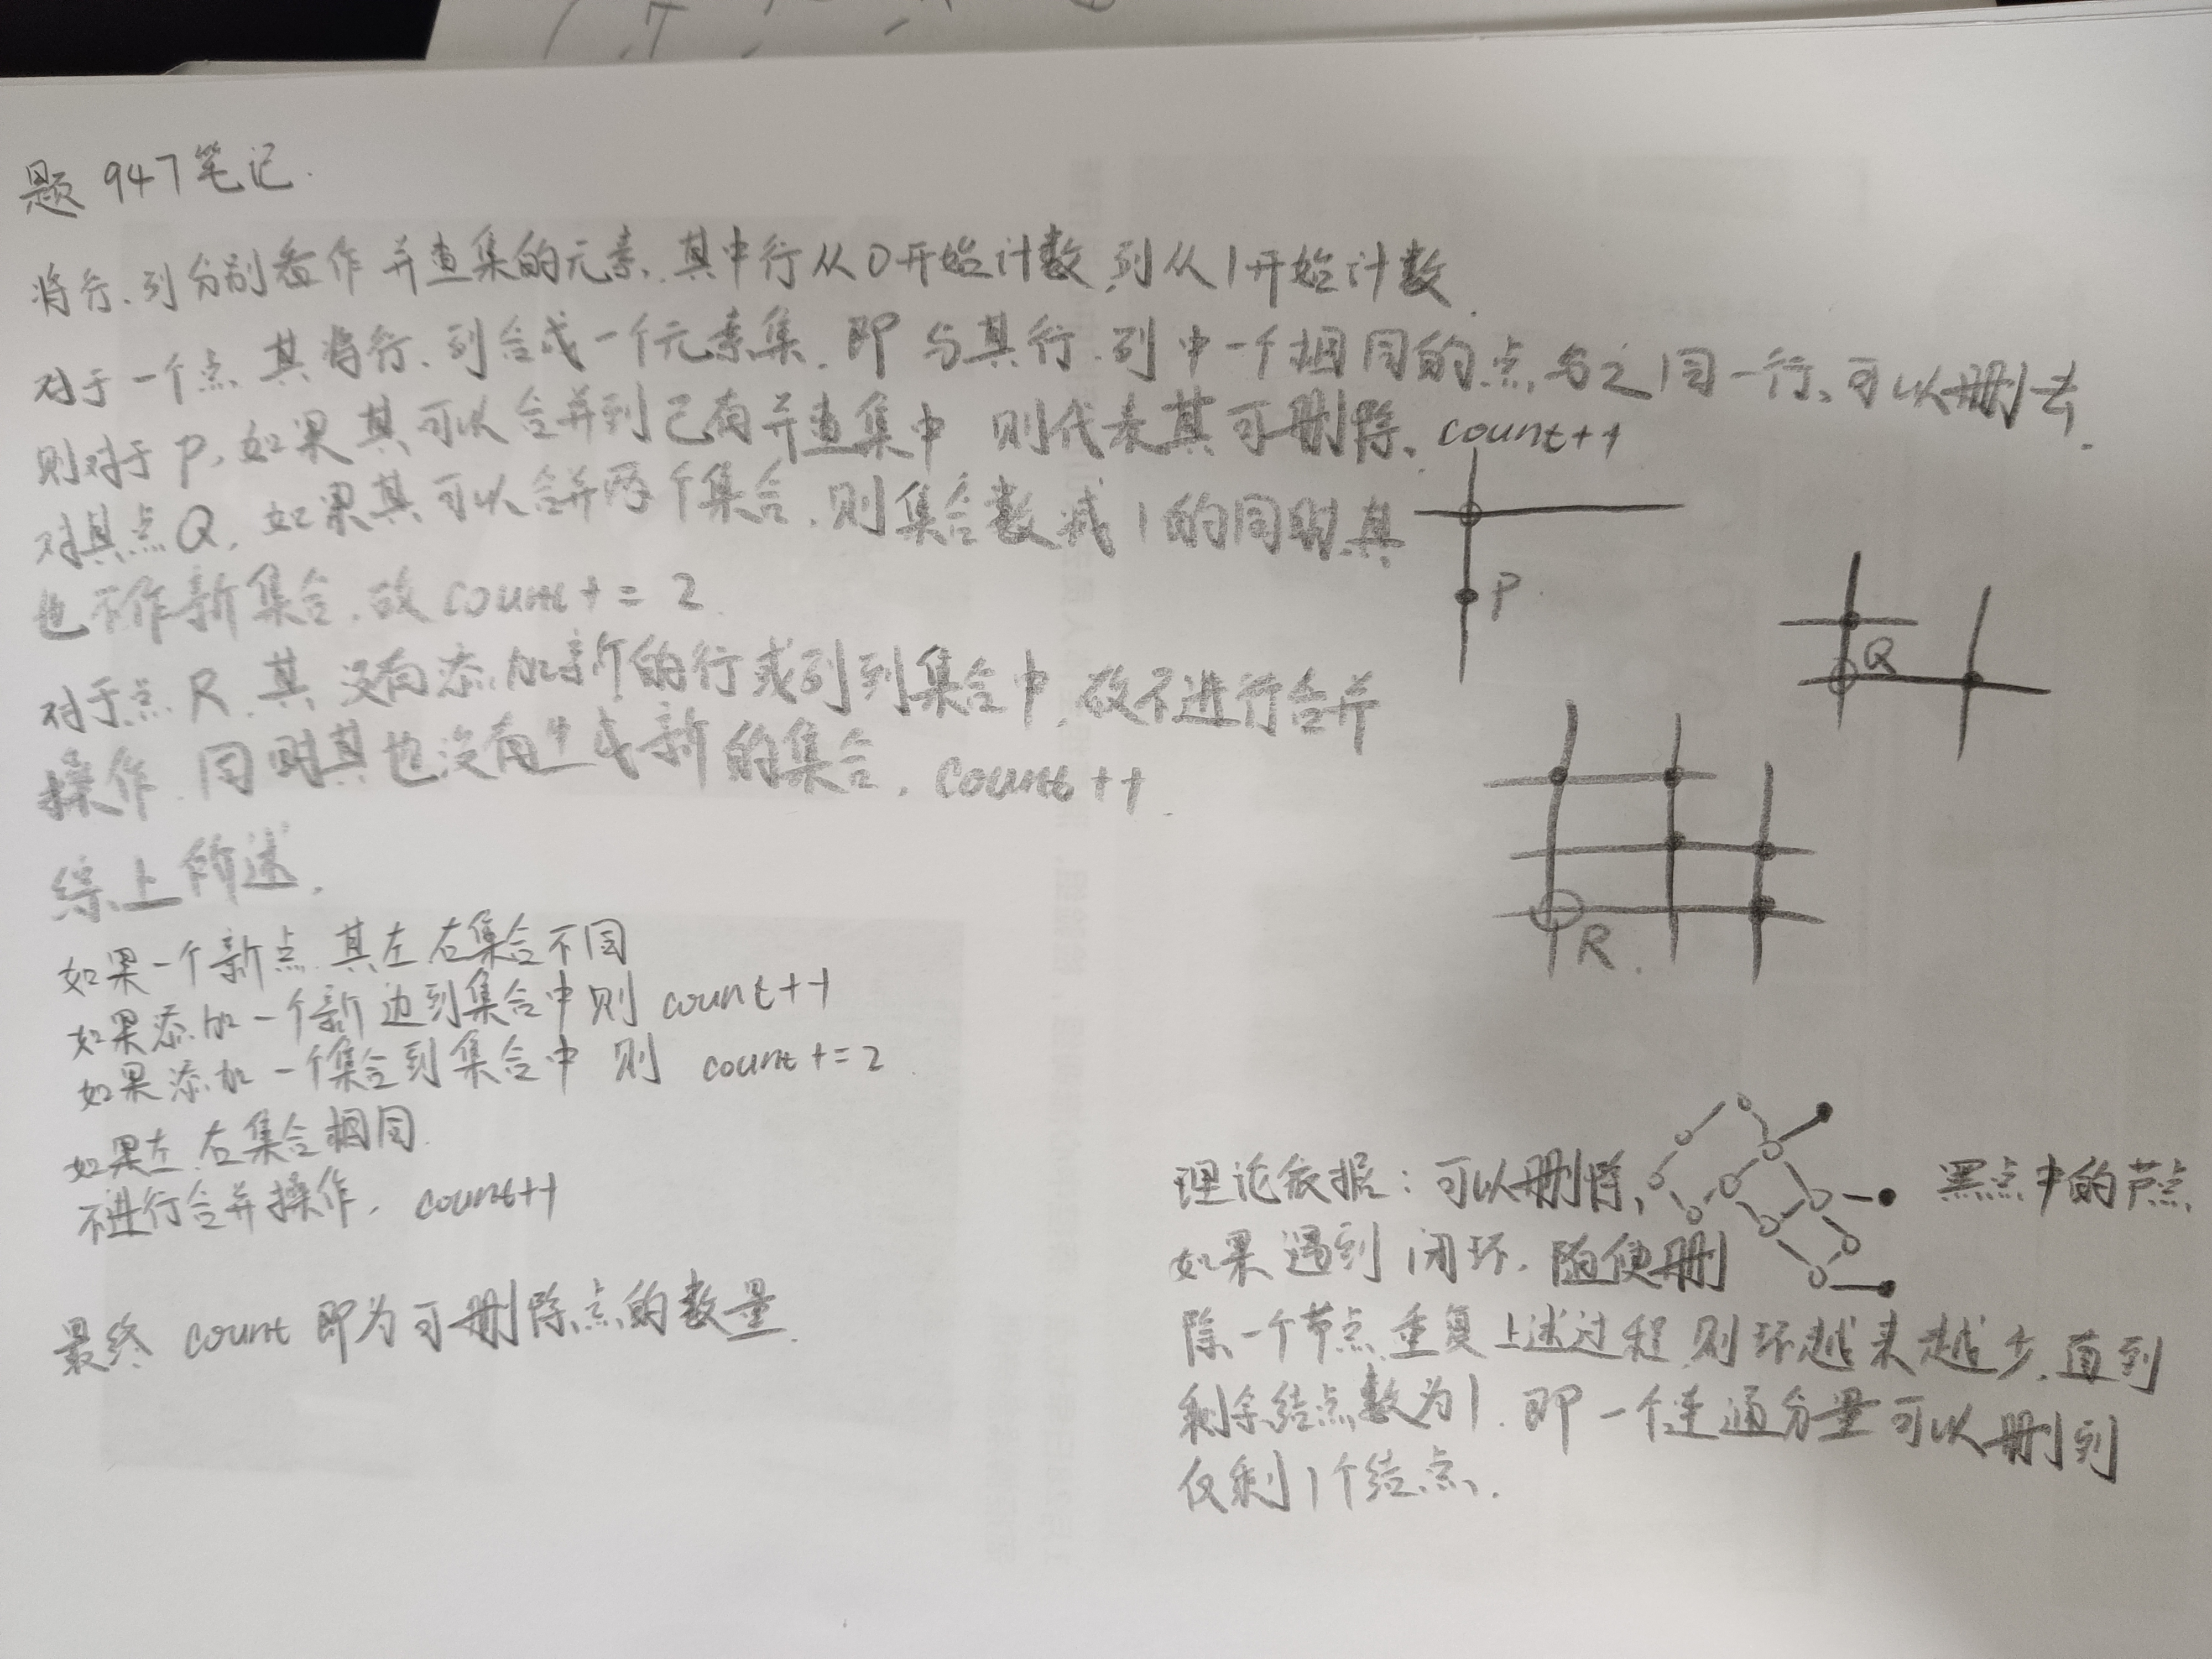 题 947 笔记.
将行、列分别看作并查集的元素, 其中行从0开始计数, 列从1开始计数.
对于一个点, 其将行、列合成一个元素集, 即与其行、列中一个相同的点, 与之同一行、可以删去.
则对于P, 如果其可以合并到已有并查集中 则代表其可删除、count++
对其点Q, 如果其可以合并两个集合, 则集合数减1的同时, 其
也不作新集合, 故 count += 2.
对于点R, 其没有添加新的行或列到集合中, 故不进行合并
操作, 同时其也没有生成新的集合, count++.
综上所述,
如果一个新点, 其左、右集合不同
如果添加一个新边到集合中则 count++
如果添加一个集合到集合中 则 count += 2
如果左、右集合相同
不进行合并操作, count++
最终 count 即为可删除点的数量.
P
Q
R.
理论依据: 可以删除 黑点中的节点,
如果遇到闭环, 随便删
除一个节点, 重复上述过程, 则环越来越少, 直到
剩余结点数为1. 即一个连通分量可以删到
仅剩1个结点.